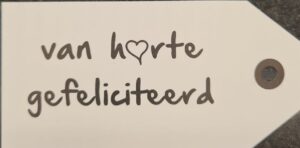 van h♡rte
gefeliciteerd